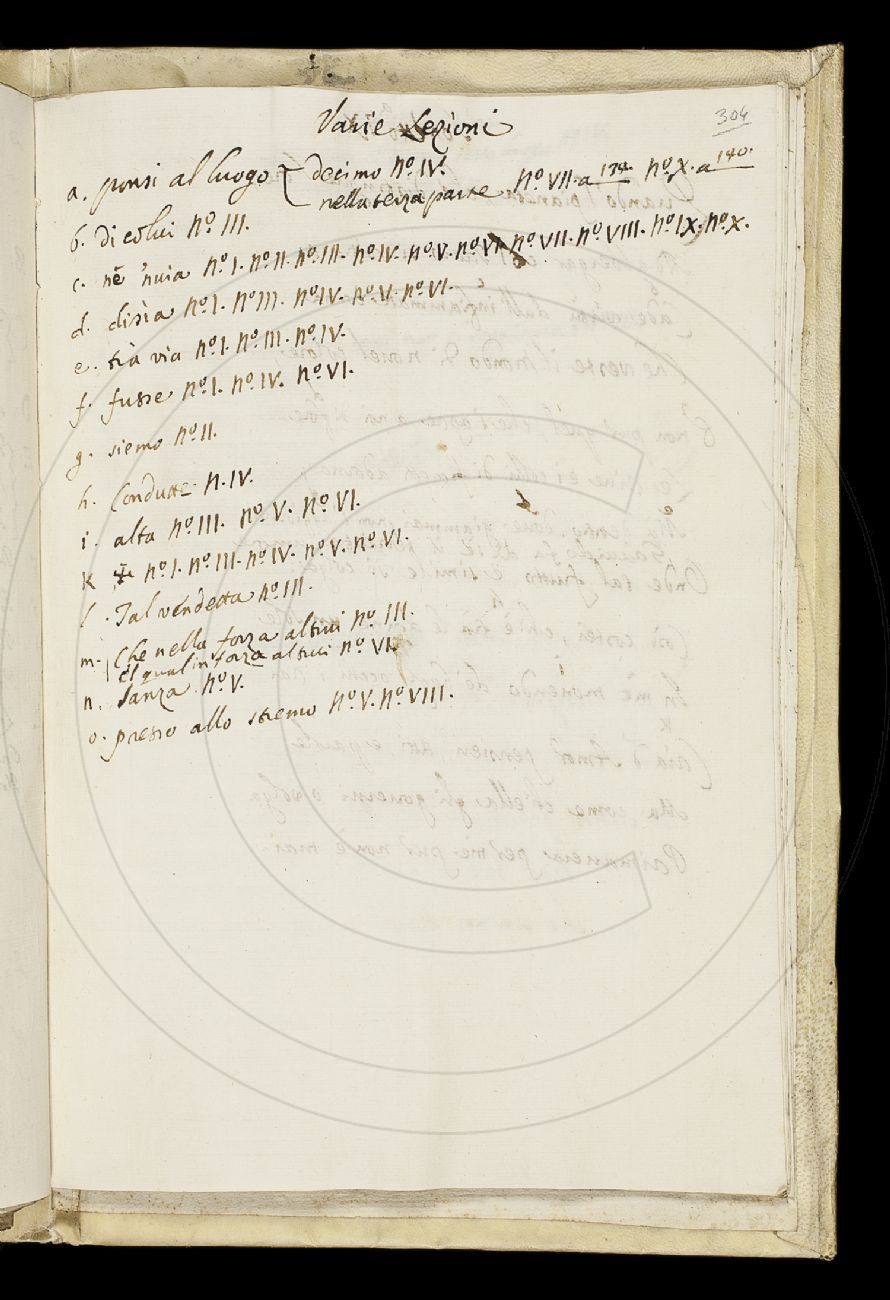 304
Varie Lezioni
a. ponsi al luogo { decimo nº. IV.
nella terza parte nº. VII. a 174. nº. X. a 140.
b. di colui nº. III.
c. nè 'nuia nº. I. nº. II. nº. III. nº. IV. nº. V. nº. VI. nº. VII. nº. VIII. nº. IX. nº. X.
d. disìa nº. I. nº. III. nº. IV. nº. V. nº. VI.
e. via nº. I. nº. III. nº. IV.
f. fusse nº. I. nº. IV. nº. VI.
g. siemo nº. II.
h. Condutte n. IV.
i. alta nº. III. nº. V. nº. VI.
K nº. I. nº. III. nº. IV. nº. V. nº. VI.
l. Tal vendetta nº. III.
m. Che nella forza altrui nº. III.
el qual in forza altrui nº. VI.
n. Sanza nº. V.
o. presso allo stremo nº. V. nº. VIII.